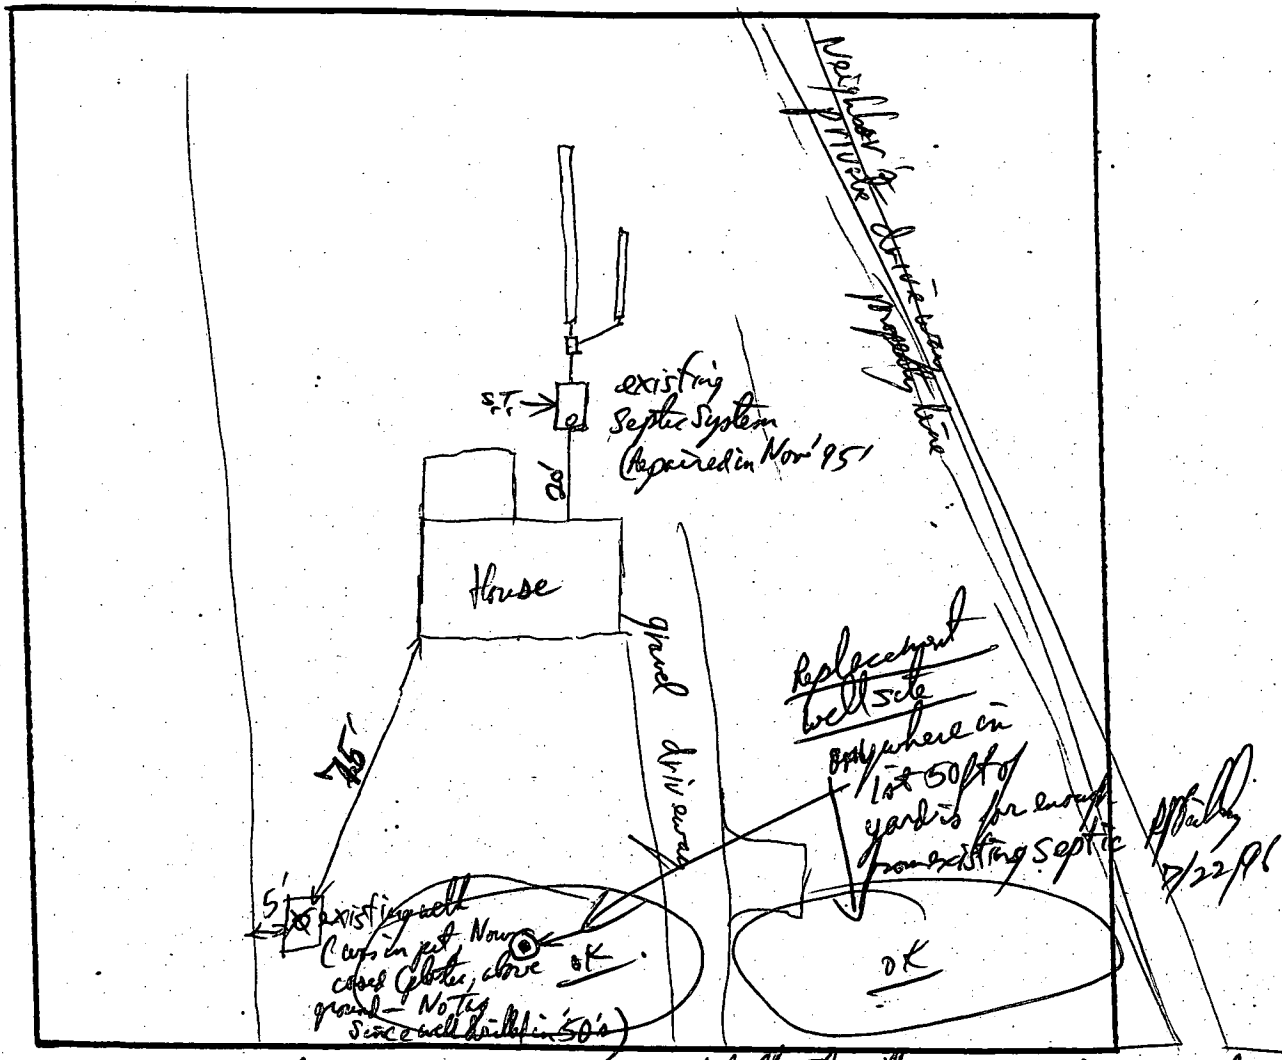 Neighbor's driveway
private
property line
S.T.
existing
Septic System
(Repaired in Nov' 95'
20'
House
gravel driveway
75'
Replacement
well site
anywhere in
1st 50ft of
yard is far enough
from existing septic
7/22/96
5'
existing well
(was in pit, Now
cased above
ground — No Tag
Since well drilled in '50's)
OK
OK